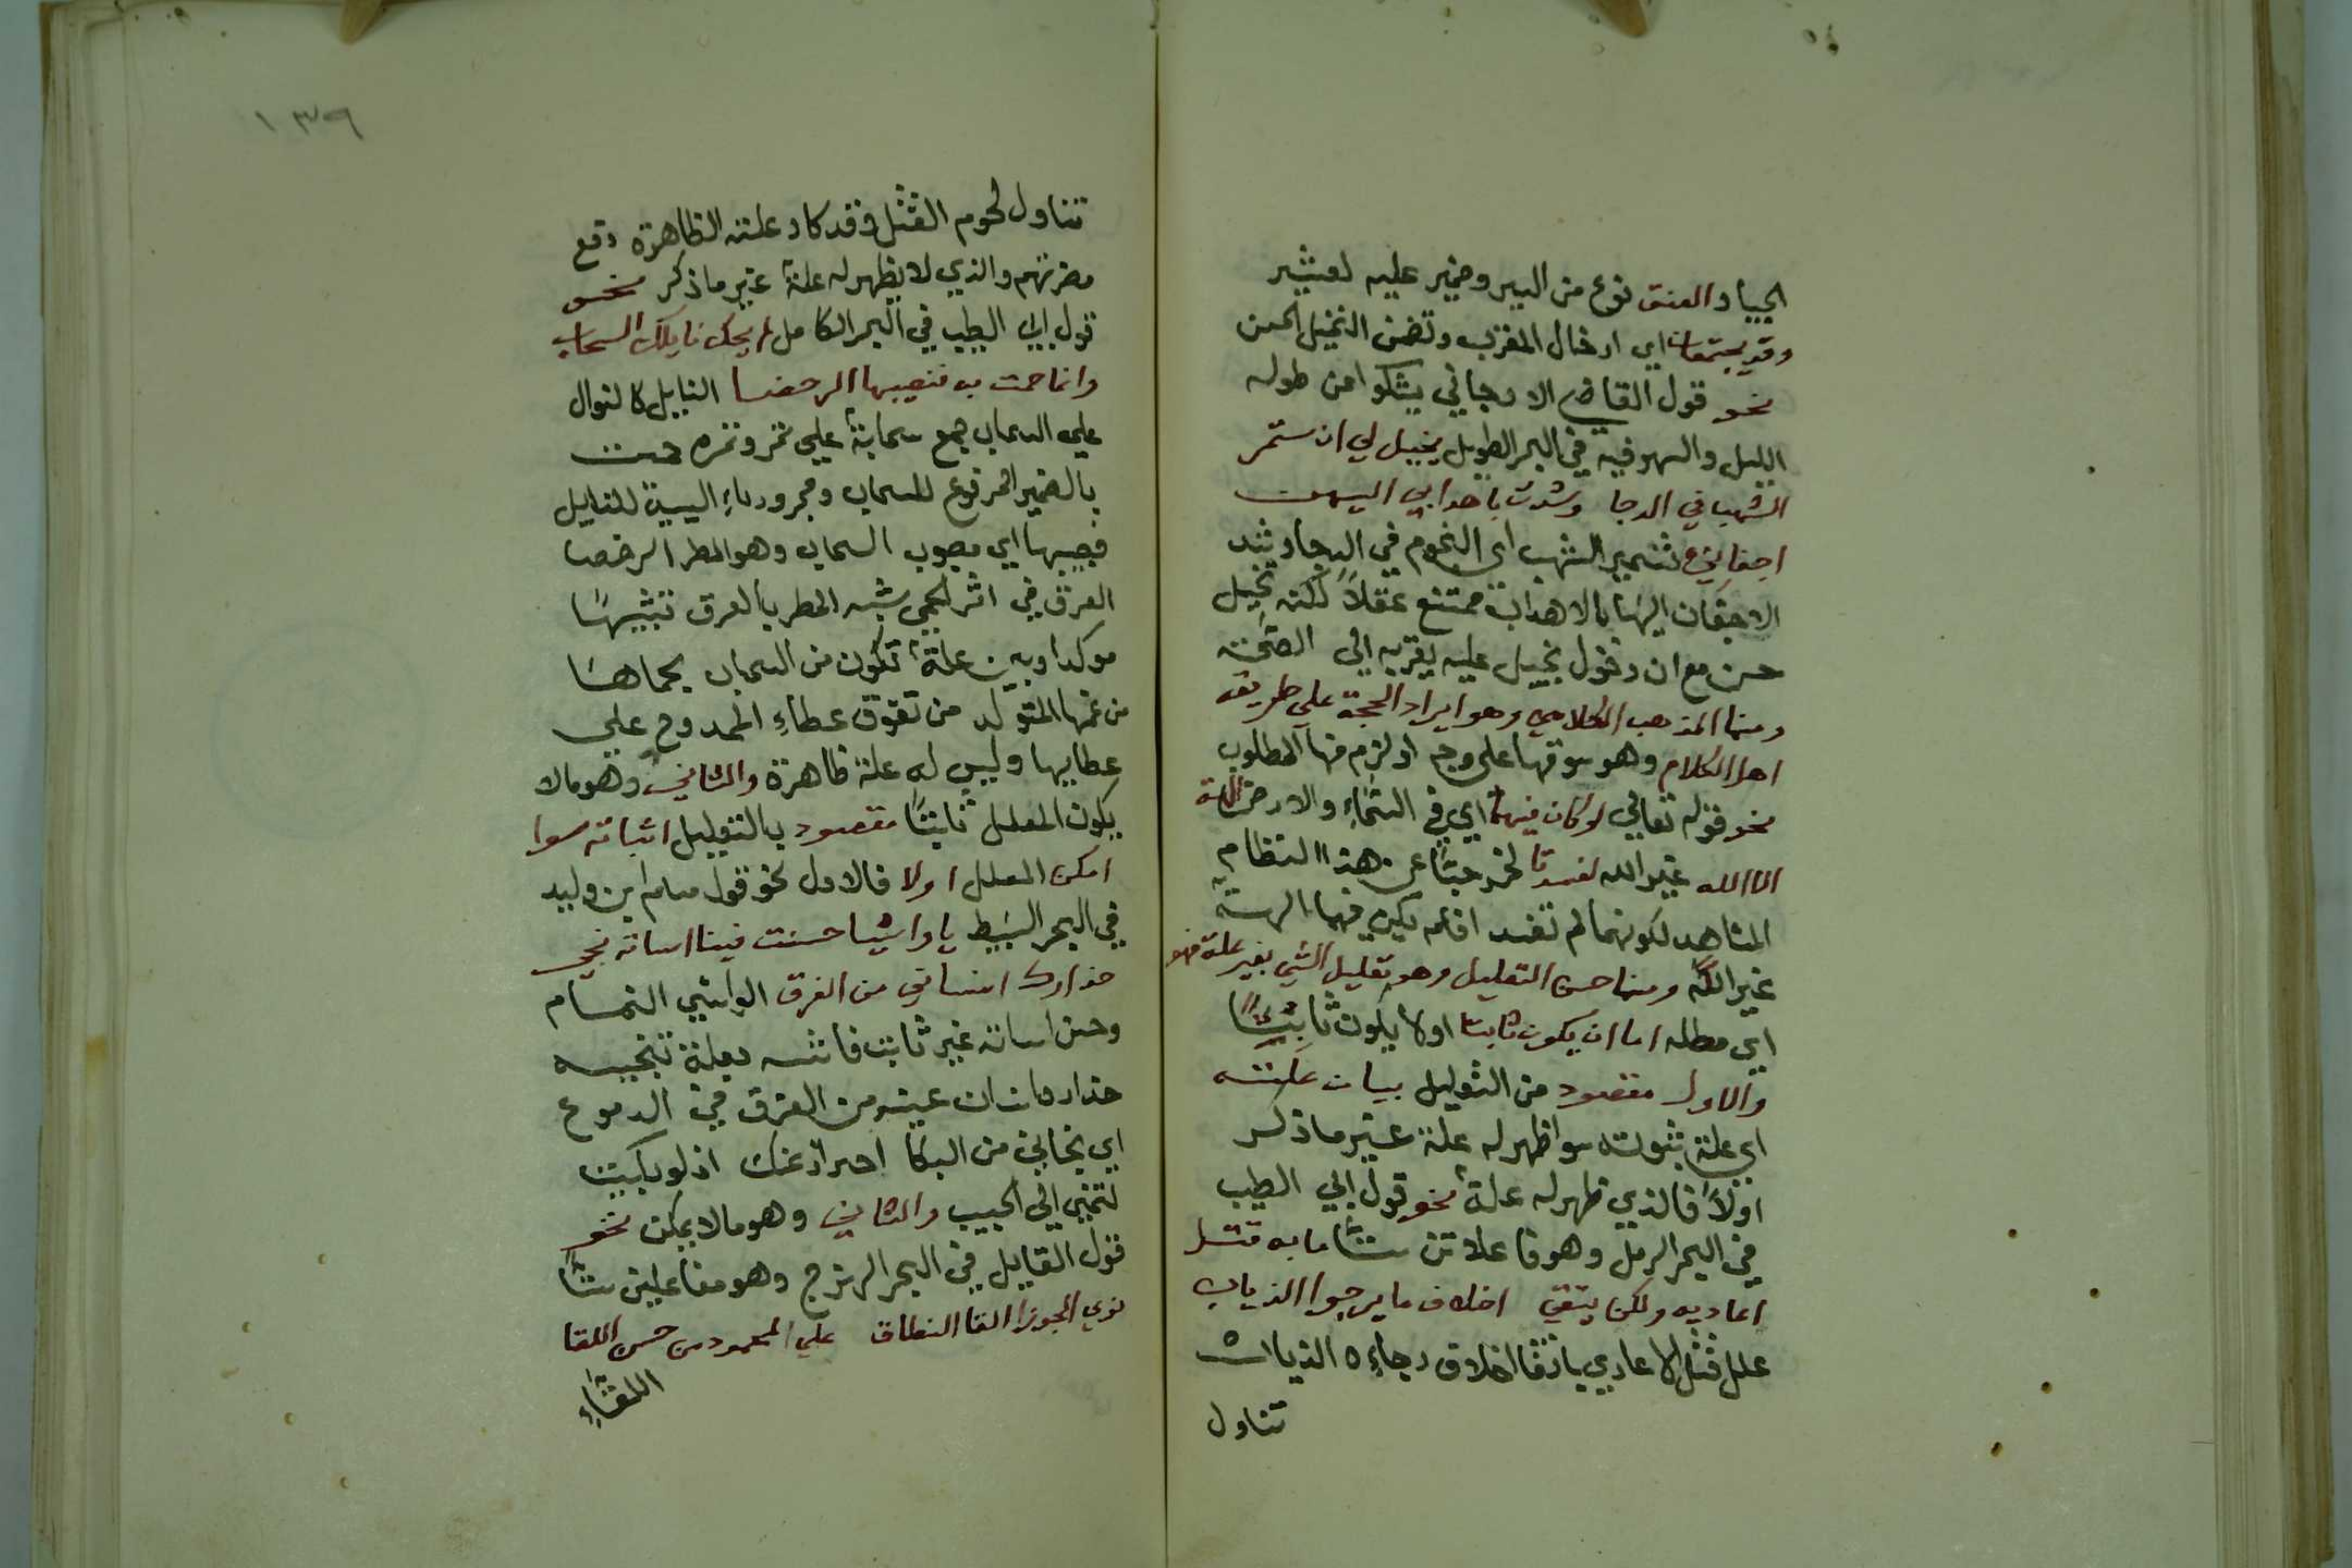 الجياد والعنق نوع من السير وضمير عليه لعثير
وقد يجتمعان اي ادخال المقرب وتضمن التخييل الحسن
نحو قول القاضي الارجاني يشكوا من طوله
الليل والسهر فيه في البحر الطويل يخيل لي ان ستمر
الشهب في الدجا وشدت باهدابي اليهن
اجفاني تسمير الشهب اي النجوم في الدجا وشد
الاجفان اليها بالاهداب ممتنع عقلاً لكنه تخيل
حسن مع ان دخول يخيل عليه يقربه الي الصحة
ومنها المذهب الكلامي وهو ايراد الحجة علي طريقة
اهل الكلام وهو سوقها علي وجه اذ لزم منها المطلوب
نحو قوله تعالي لو كان فيهما اي في السماء والارض الهة
الا الله غير الله لفسدتا لخرجتا عن هذا النظام
المشاهد لكونهما لم تفسد افلم يكن فيهما الهة
غير الله ومنها حسن التعليل وهو تعليل الشي بغير علته فهو
اي معلله اما ان يكون ثابتا اولا يكون ثابتًا
والاول مقصود من التعليل بيان علته
اي علة ثبوته سوا ظهر له علة غير ما ذكر
اولاً فالذي ظهر له علة نحو قول ابي الطيب
في البحر الرمل وهو فاعلاتن ستًا ما به قتل
اعاديه ولكن يتقي اخلاف ما يرجوا الذياب
علل قتل الاعادي باتقا اخلاف رجاءه الذياب
تناول
١٣٩
تناول لحوم القتل فقد كاد علته الظاهرة دفع
مضرتهم والذي لا يظهر له علة غير ما ذكر نحو
قول ابي الطيب في البحر الكامل لم يحك نايلك السحاب
وانما حمت به فصبيبها الرحضا النايل كالنوال
علي السحاب جمع سحابة علي تمر وتمره حمت
بالضمير المرفوع للسحاب ومجرور باء السببية للنايل
فصبيبها اي مصبوب السحاب وهو المطر الرحضا
العرق في اثر الحمي شبه المطر بالعرق تشبيهًا
موكدا وبين علة تكون من السحاب بحماها
من غمها المتولد من تفوق عطاءِ الممدوح علي
عطايها وليس له علة ظاهرة والثاني وهو ما لا
يكون المعلل ثابتًا مقصود بالتعليل اثباته سوا
امكن المعلل اولا فالاول نحو قول مسلم ابن وليد
في البحر البسيط يا واشيا حسنت فينا اساته نجي
حذارك انساني من الغرق الواشي النمام
وحسن اساته غير ثابت فاثبته بعلة تنجيه
حذاره انسان عينه من الغرق في الدموع
اي نجاني من البكا احترازً عنك اذ لو بكيت
لتجي الي الحبيب والثاني وهو ما لا يمكن نحو
قول القايل في البحر الهزج وهو مفاعلين ستًا
نوي الجوزا القا النطاق علي المحمود من حسن اللقا
اللقاءِ